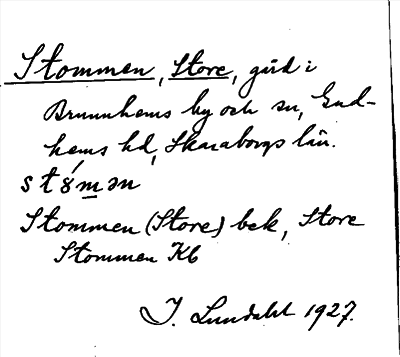 Stommen, Store, gård i
Brunnhems by och sn, Gud-
hems hd, Skaraborgs län.
stómən
Stommen (Store) bek, Store
Stommen Kb
I. Lundahl 1927.